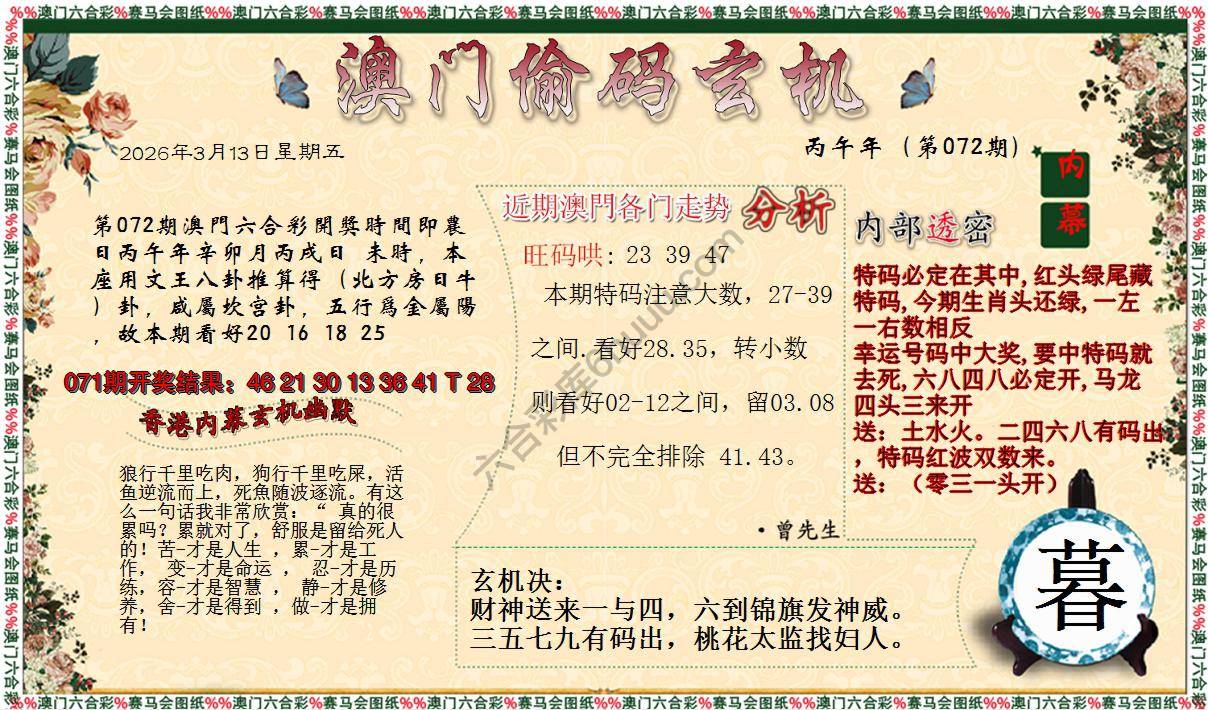 %%澳门六合彩%赛马会图纸%%澳门六合彩%赛马会图纸%%澳门六合彩%赛马会图纸%%澳门六合彩%赛马会图纸%%澳门六合彩%赛马会图纸%%澳门六合彩%赛马会图纸%%
澳门偷码玄机
2026年3月13日星期五
丙午年（第072期）
内幕
第072期澳門六合彩開獎時間即農
日丙午年辛卯月丙戌日 未時，本
座用文王八卦推算得（北方房日牛
）卦，咸屬坎宫卦，五行爲金屬陽
，故本期看好20 16 18 25
071期开奖结果：46 21 30 13 36 41 T 28
香港内幕玄机幽默
狼行千里吃肉，狗行千里吃屎，活
鱼逆流而上，死魚随波逐流。有这
么一句话我非常欣赏：“ 真的很
累吗？累就对了，舒服是留给死人
的！苦-才是人生 ，累-才是工
作， 变-才是命运 ， 忍-才是历
练，容-才是智慧 ， 静-才是修
养，舍-才是得到 ，做-才是拥
有！
近期澳門各门走势 分析
旺码哄: 23 39 47
本期特码注意大数，27-39
之间.看好28.35，转小数
则看好02-12之间，留03.08
但不完全排除 41.43。
·曾先生
内部透密
特码必定在其中,红头绿尾藏
特码,今期生肖头还绿,一左
一右数相反
幸运号码中大奖,要中特码就
去死,六八四八必定开,马龙
四头三来开
送：土水火。二四六八有码出
，特码红波双数来。
送：（零三一头开）
玄机决：
财神送来一与四，六到锦旗发神威。
三五七九有码出，桃花太监找妇人。
暮
%%澳门六合彩%赛马会图纸%%澳门六合彩%赛马会图纸%%澳门六合彩%赛马会图纸%%澳门六合彩%赛马会图纸%%澳门六合彩%赛马会图纸%%澳门六合彩%赛马会图纸%%